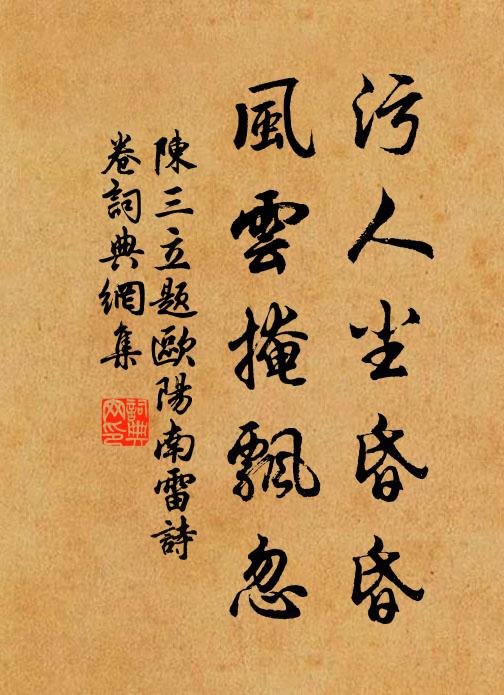 污人尘昏昏
風雲掩飄忽
陳三立題歐陽南雷詩
卷詞典網集
詞典
网印